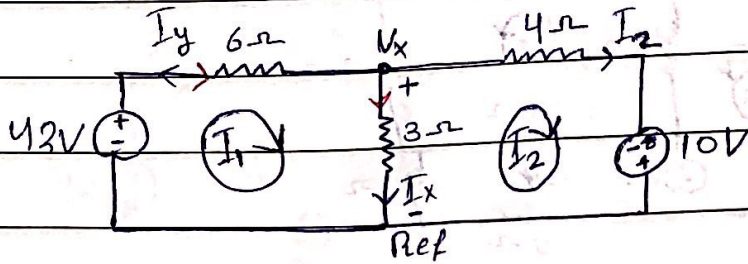 Iy 6Ω Vx 4Ω I2
+
42V + - I1 3Ω I2 - + 10V
Ix
-
Ref